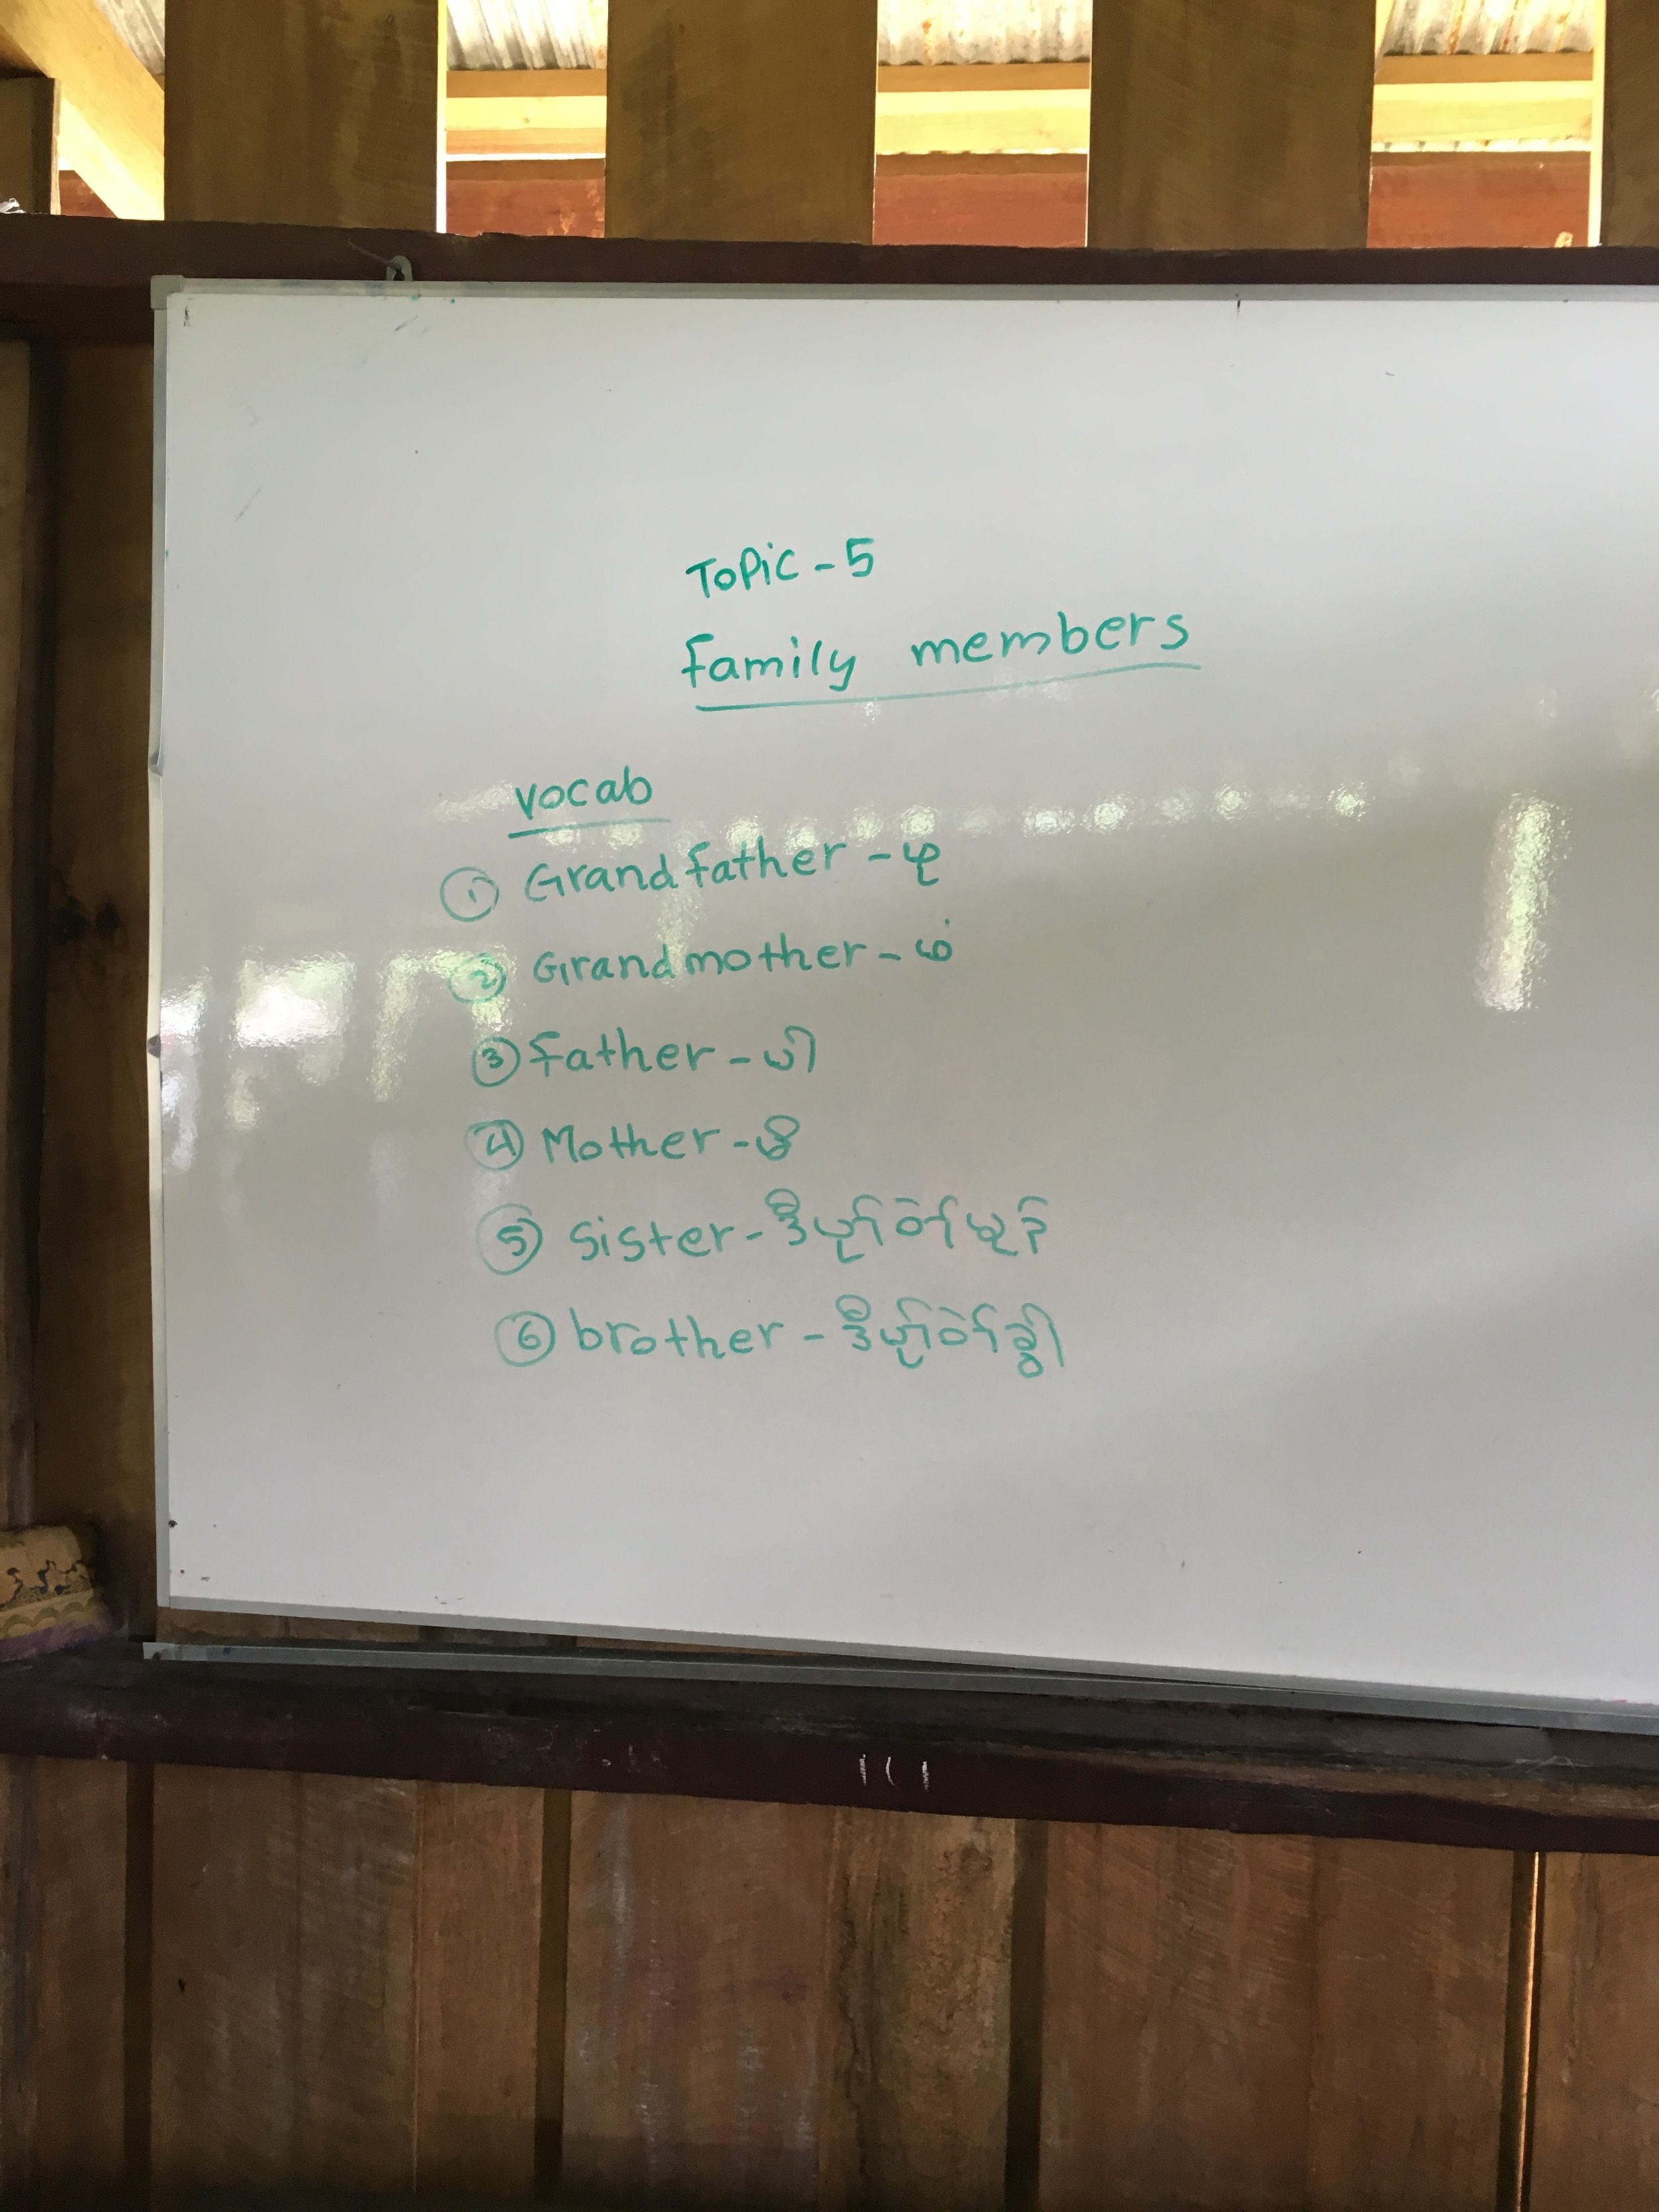 Topic - 5
family members
vocab
① Grandfather - ဖု
② Grandmother - ဖံ
③ father - ပါ
④ Mother - မိ
⑤ sister - ဒီပုၢ်ဝဲၢ်မုၣ်
⑥ brother - ဒီပုၢ်ဝဲၢ်ခွါ